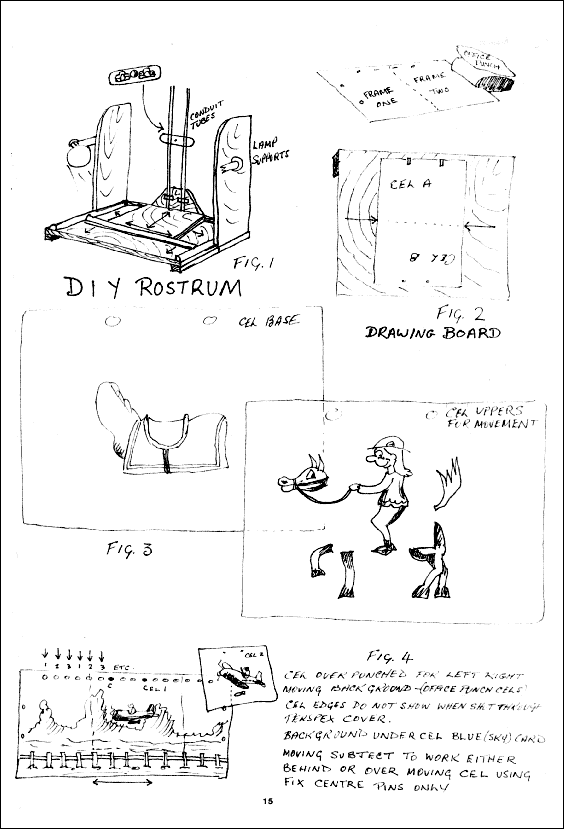 OFFICE
PUNCH
FRAME
ONE
FRAME
TWO
CONDUIT
TUBES
LAMP
SUPPORTS
FIG. 1
DIY ROSTRUM
CEL A
CEL B
FIG. 2
DRAWING BOARD
CEL BASE
FIG. 3
CEL UPPERS
FOR MOVEMENT
1 2 3 1 2 3 ETC.
C
CEL 1
CEL 2
FIG. 4
CEL OVER PUNCHED FOR LEFT RIGHT
MOVING BACKGROUND - (OFFICE PUNCH CELS)
CEL EDGES DO NOT SHOW WHEN SHOT THROUGH
PERSPEX COVER.
BACKGROUND UNDER CEL BLUE (SKY) CARD
MOVING SUBJECT TO WORK EITHER
BEHIND OR OVER MOVING CEL USING
FIX CENTRE PINS ONLY
15